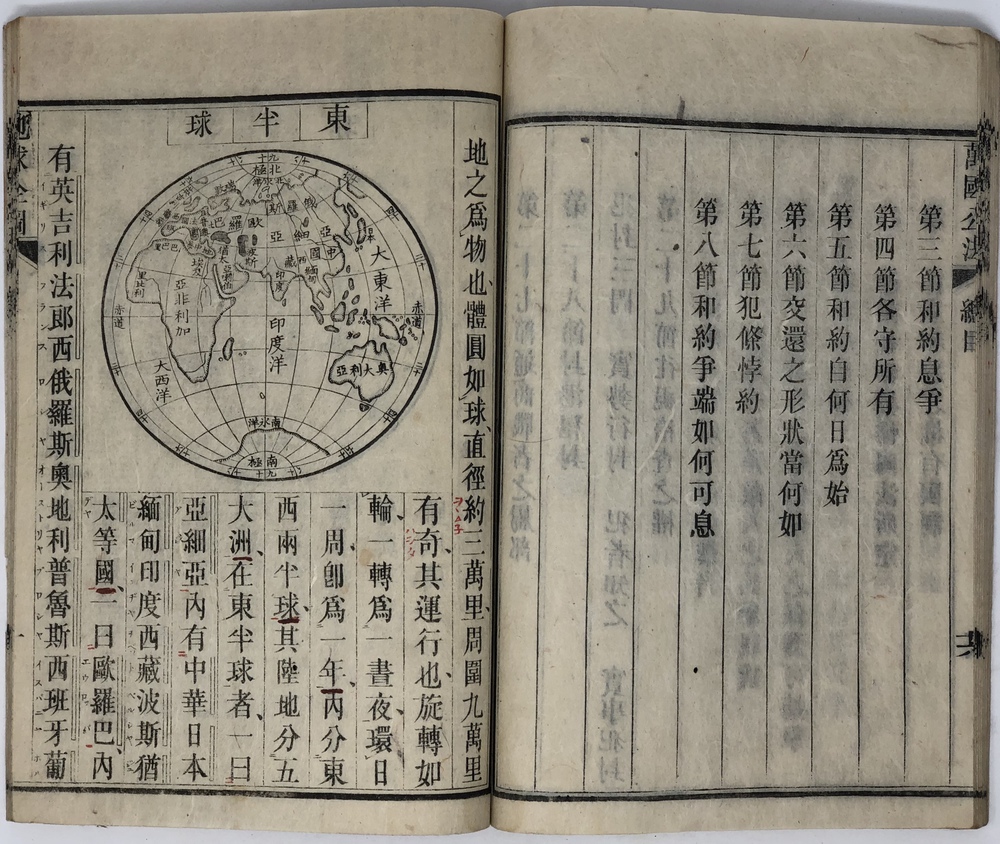 萬國公法 總目
第三節和約息爭
第四節各守所有
第五節和約自何日爲始
第六節交還之形狀當何如
第七節犯條悖約
第八節和約爭端如何可息
地之爲物也體圓如球直徑約三萬里周圍九萬里
有奇其運行也旋轉如
輪一轉爲一晝夜環日
一周卽爲一年內分東
西兩半球其陸地分五
大洲在東半球者一曰
亞細亞內有中華日本
緬甸印度西藏波斯猶
太等國一曰歐羅巴內
有英吉利法郎西俄羅斯奧地利普魯斯西班牙葡
東半球
北極
俄羅斯
歐羅巴
亞細亞
中國
日本
西藏
緬甸
印度
波斯
亞非利加
大東洋
印度洋
大西洋
赤道
赤道
奧大利亞
南冰洋
南極
地球全圖